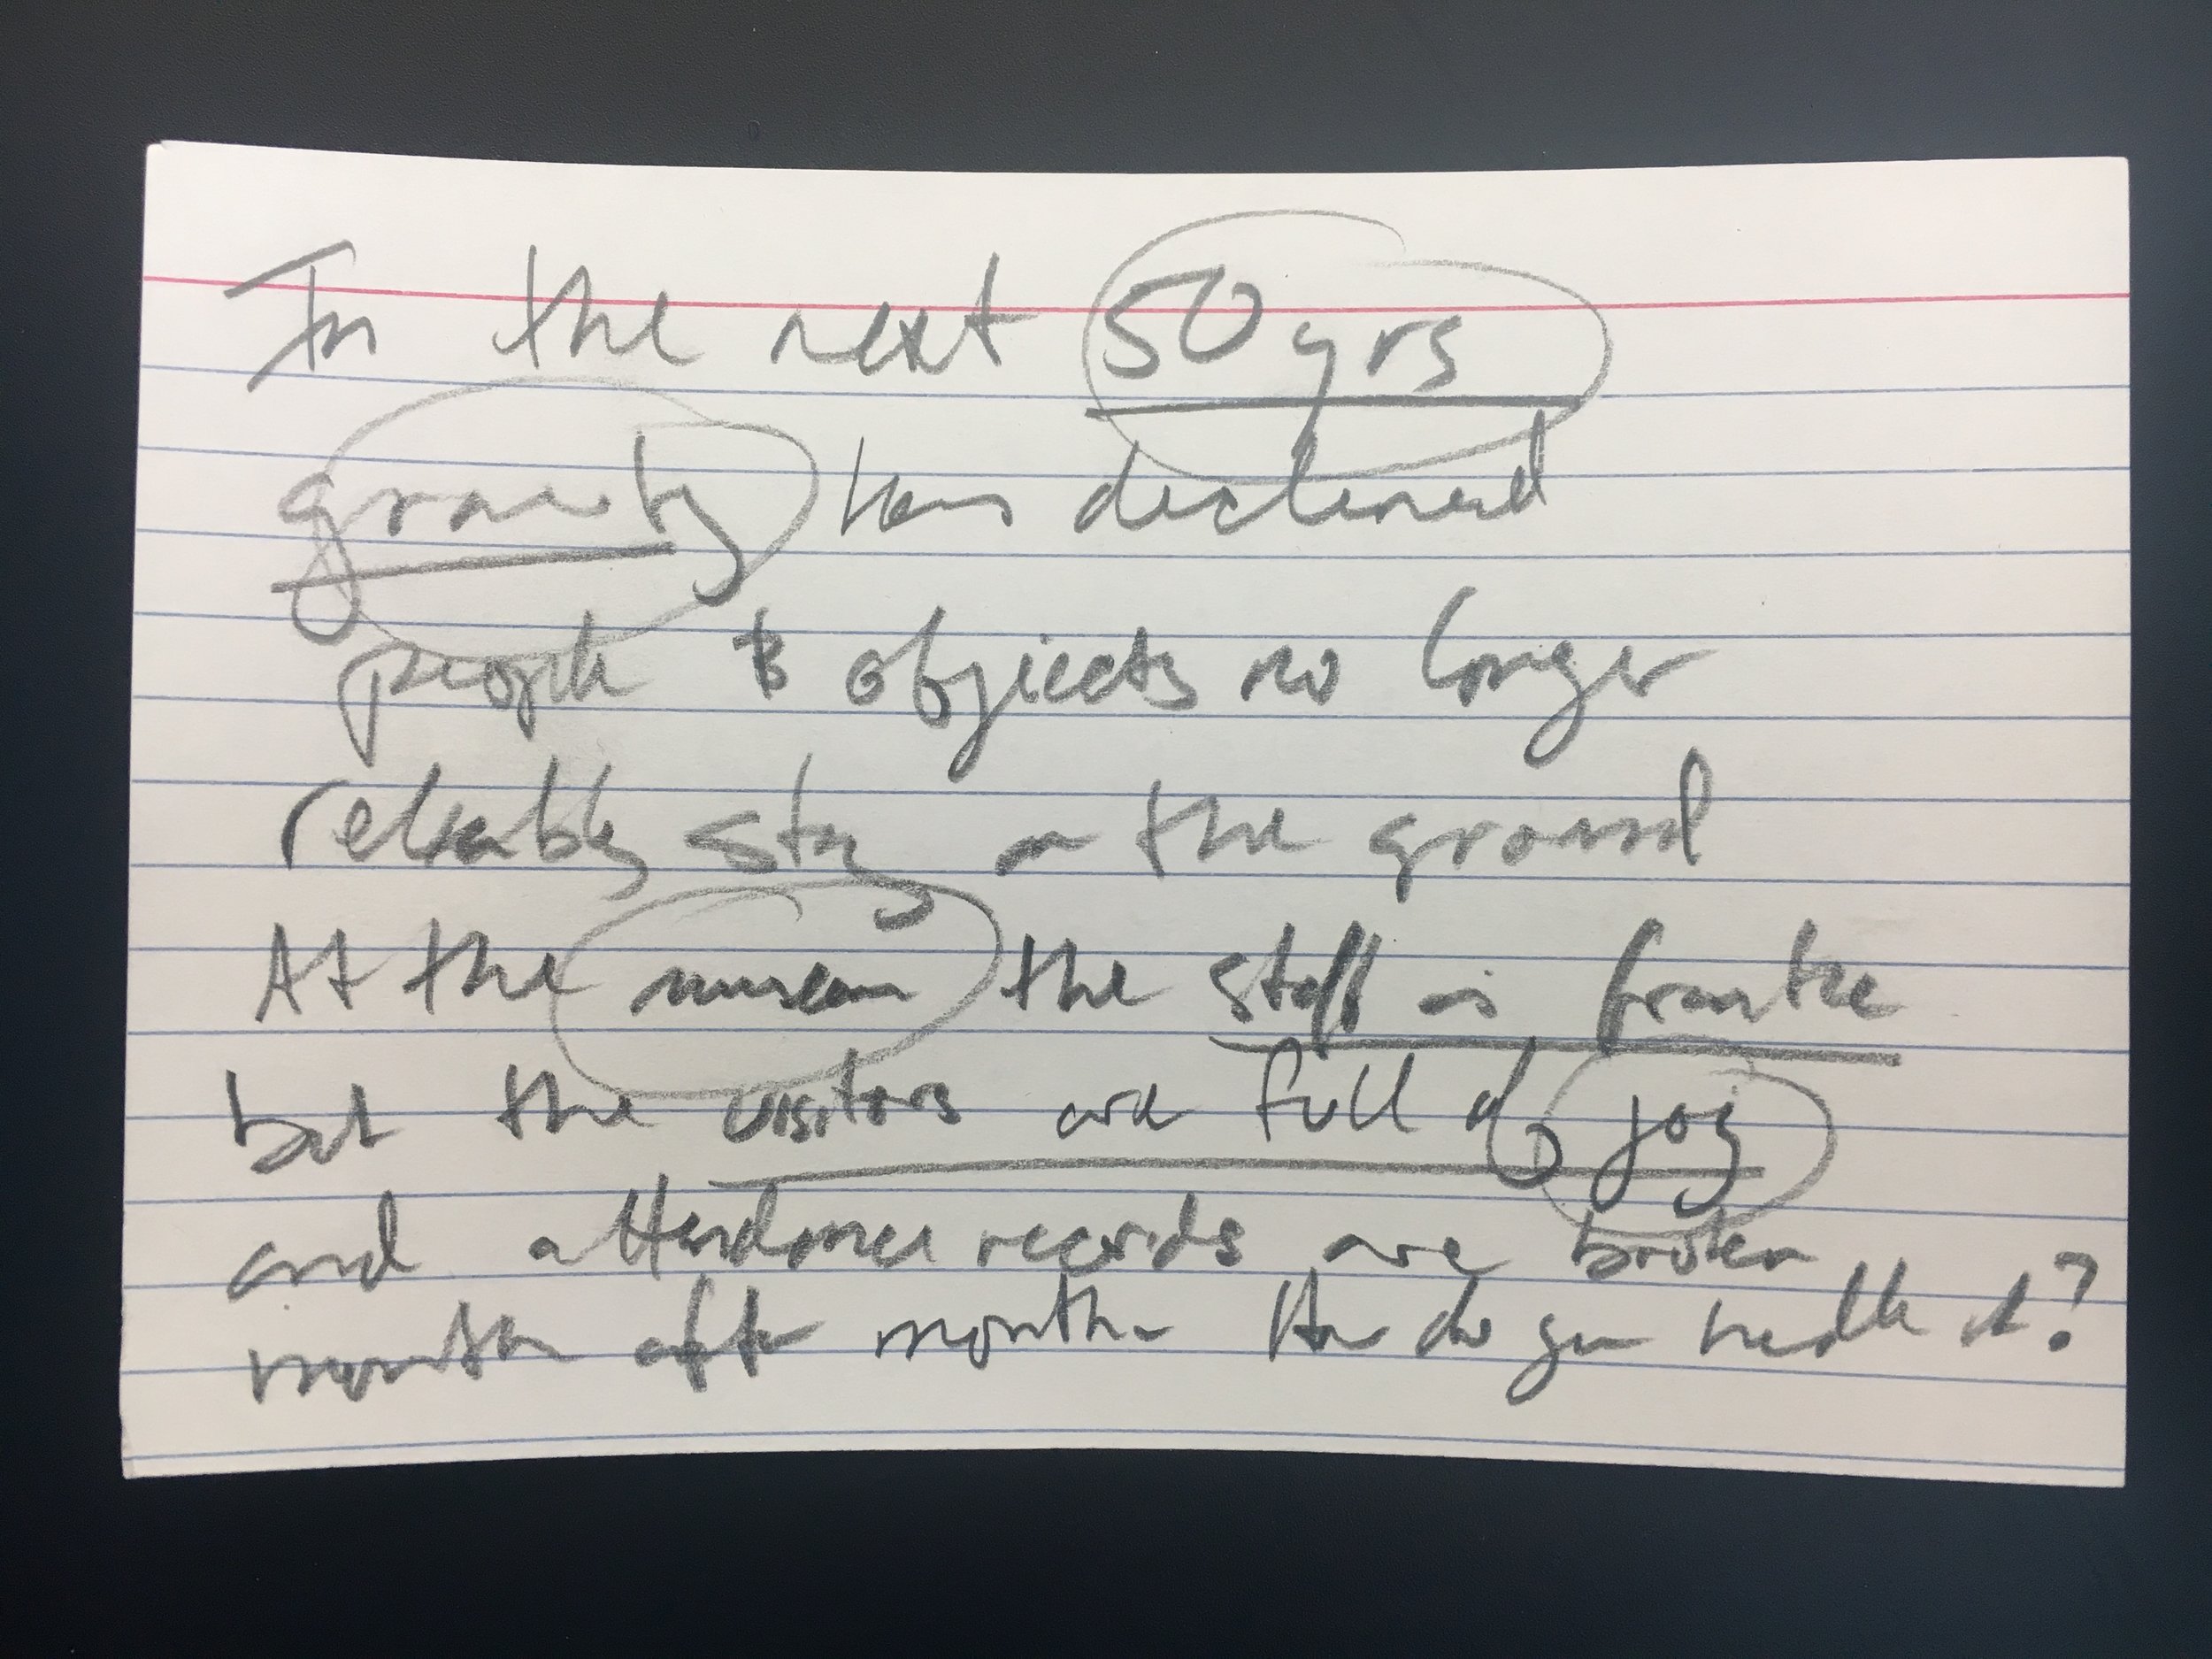 In the next 50 yrs
gravity has declined
people & objects no longer
reliably stay on the ground
At the museum the staff is frantic
but the visitors are full of joy
and attendance records are broken
month after month. How do you handle it?